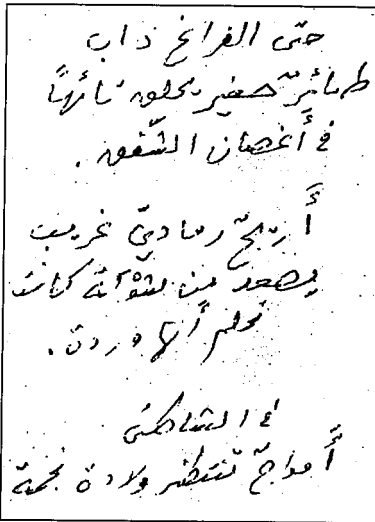 حتى الفراغ ذاب
طائرٌ صغير يحلق تائهًا
في أغصان الشفق.
أريجٌ رماديّ غريب
يصعد من كانت
تحلم أنها وردة.
في الشاطئ
أمواجٌ تنتظر ولادة نجمة